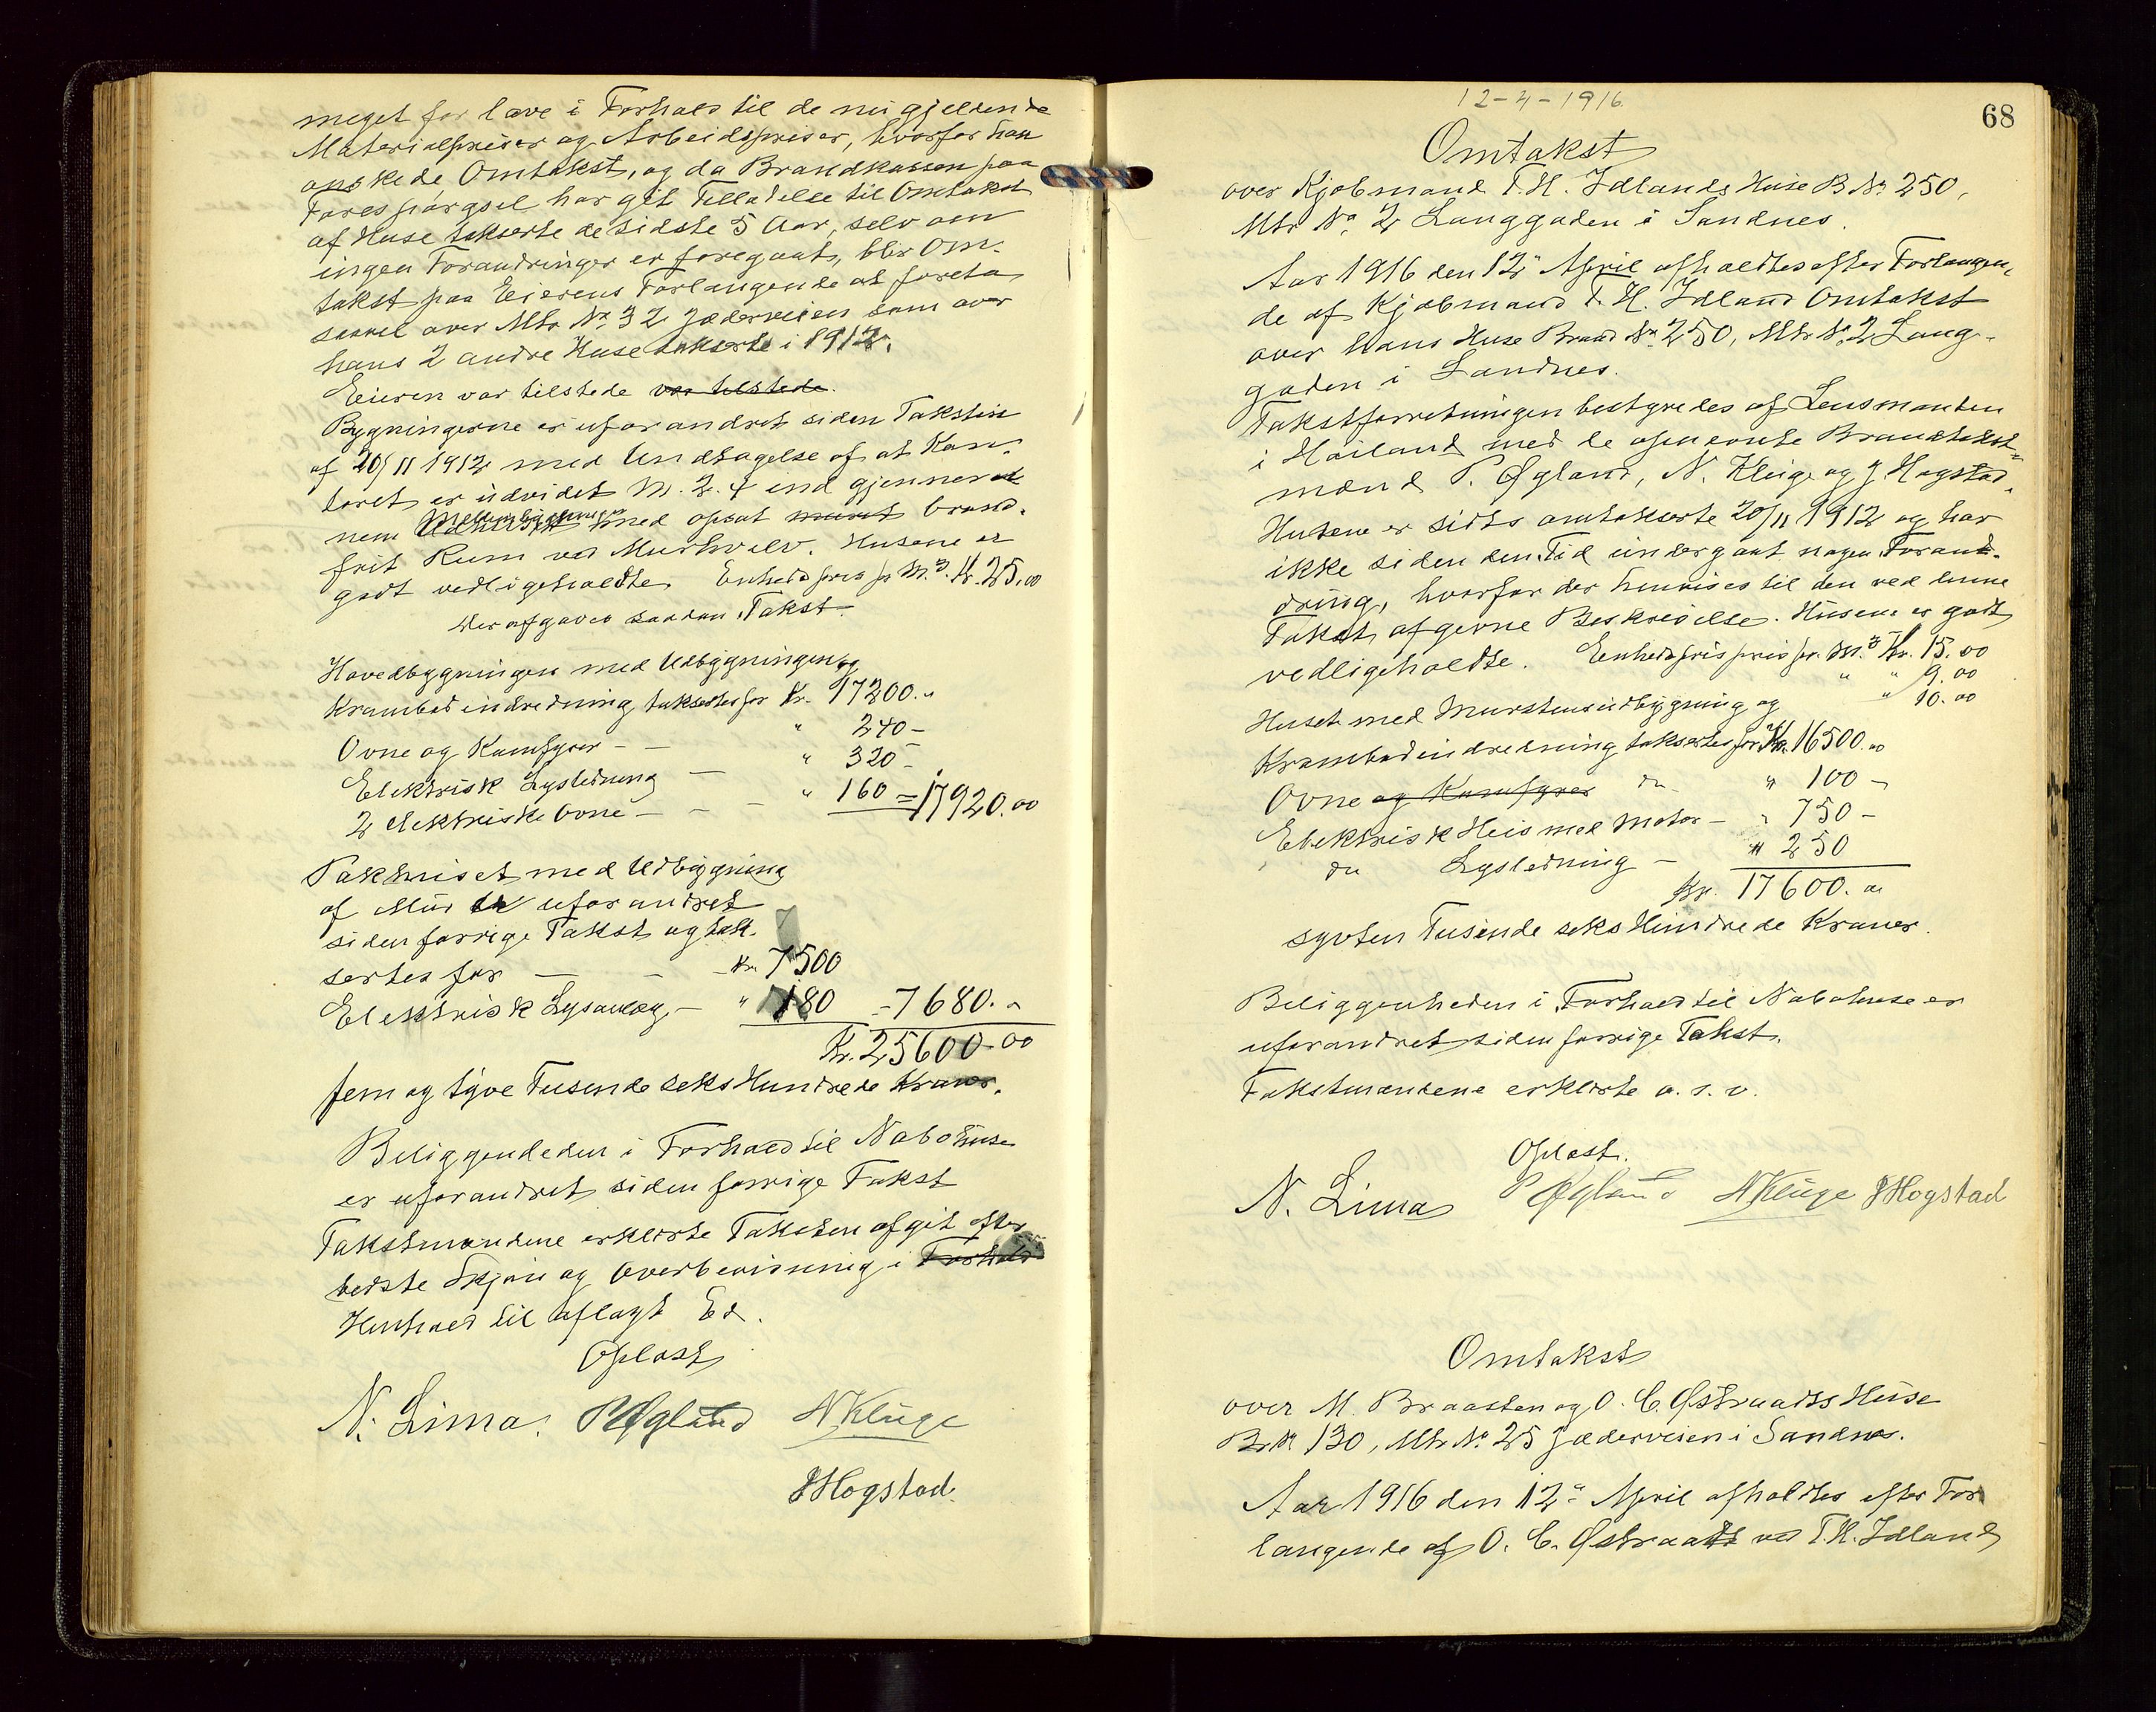 meget for lave i Forhold til de nugjeldende
Materialpriser og Arbeidspriser, hvorfor han
ønskede Omtakst, og da Brandkassen paa
Forespørgsel har git Tilladelse til Omtakst
af Huse takserte de sidste 5 Aar, selv om
ingen Forandringer er foregaat, blir Om-
takst paa Eierens Forlangende at foreta
saavel over Mtr No 32 Jæderveien som over
hans 2 andre Huse takserte i 1912.
Eieren var tilstede var tilstede.
Bygningerne er uforandret siden Taksten
af 20/11 1912 med Undtagelse af at Kon-
toret er utvidet M. 2.4 ind gjennem
nem Mellembygningen med opsat muret brand-
frit Rum ved Murhvelv. Husene er
godt vedligeholdte. Enhedspris pr M.3. Kr. 25,00
Der afgaves saadan Takst.
Hovedbygningen med Udbygningen og
Krambodindredning taksertes for Kr. 17200.„
Ovne og Komfyrer - - „ 240 -
Elektrisk Lysledning - „ 320 -
2 elektriske Ovne - - - „ 160 = 17920.00
Pakhuset med Udbygning
af Mur er uforandret
siden forrige Takst og tak-
sertes for - - - Kr. 7500
Elektrisk Lysanlæg - „ 180 = 7680. „
Kr. 25600-00
fem og tyve Tusende seks Hundrede Kroner.
Beliggendeden i Forhold til Nabohuse
er uforandret siden forrige Takst
Takstmændene erklærte Taksten afgit efter
bedste Skjøn og Overbevisning i Forhold
Henhold til aflagt Ed.
Oplæst
N. Lima. P Øgland N Kluge
J Hogstad.
12-4-1916.
68
Omtakst
over Kjøbmand T. H. Idlands Huse B No 250,
Mtr No. 2 Langgaden i Sandnes.
Aar 1916 den 12te April afholdtes efter Forlangen-
de af Kjøbmand T. H. Idland Omtakst
over hans Huse Brand No. 250, Mtr No. 2 Lang-
gaden i Sandnes.
Takstforretningen bestyredes af Lensmanden
i Høiland med de opnevnte Brandtakst-
mænd P. Øgland, N. Kluge og J Hogstad.
Husene er sidts omtakserte 20/11 1912 og har
ikke siden den Tid undergaat nogen Forand-
dring, hvorfor der henvises til den ved denne
Takst afgivne Beskrivelse. Husene er godt
vedligeholdte. Eenhedspris pris pr. M.3 Kr. 15.00
„ „ 9.00
„ 10.00
Huset med Murstensudbygning og
Krambodindredning taksertes for Kr. 16500.00
Ovne og Komfyrer do „ 100 -
Elektrisk Heis med Motor - „ 750 -
do Lysledning - „ 250
Kr. 17600. 00
sytten Tusende seks Hundrede Kroner.
Beliggenheden i Forhold til Nabohuse er
uforandret siden forrige Takst.
Takstmændene erklærte o. s. v.
Oplæst.
N. Lima P Øgland N Kluge J Hogstad
Omtakst
over M. Braasten og O. C. Østraadts Huse
Br. N 130, Mtr No. 25 Jæderveien i Sandnes.
Aar 1916 den 12te April afholdtes efter For
langende af O. C. Østraadt ved T. H. Idland